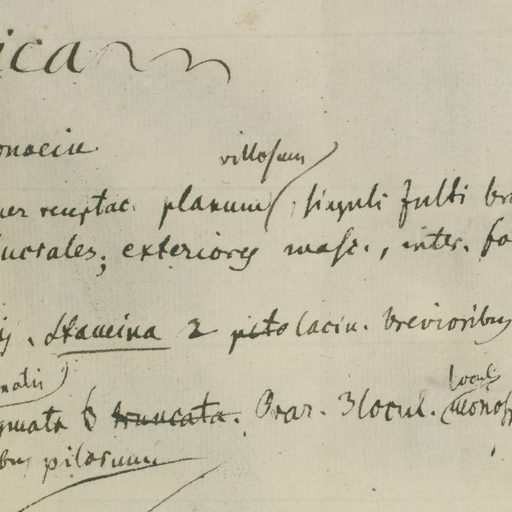 ica
onaciu
villosum
per receptac. planum, singuli fulti br
lucrales; exteriores masc., inter. fo
is. Stamina 2 petolaciu. brevioribus
natis
gmata 6 truncata. Ovar. 3locul. loculis monosp
bus pilosum